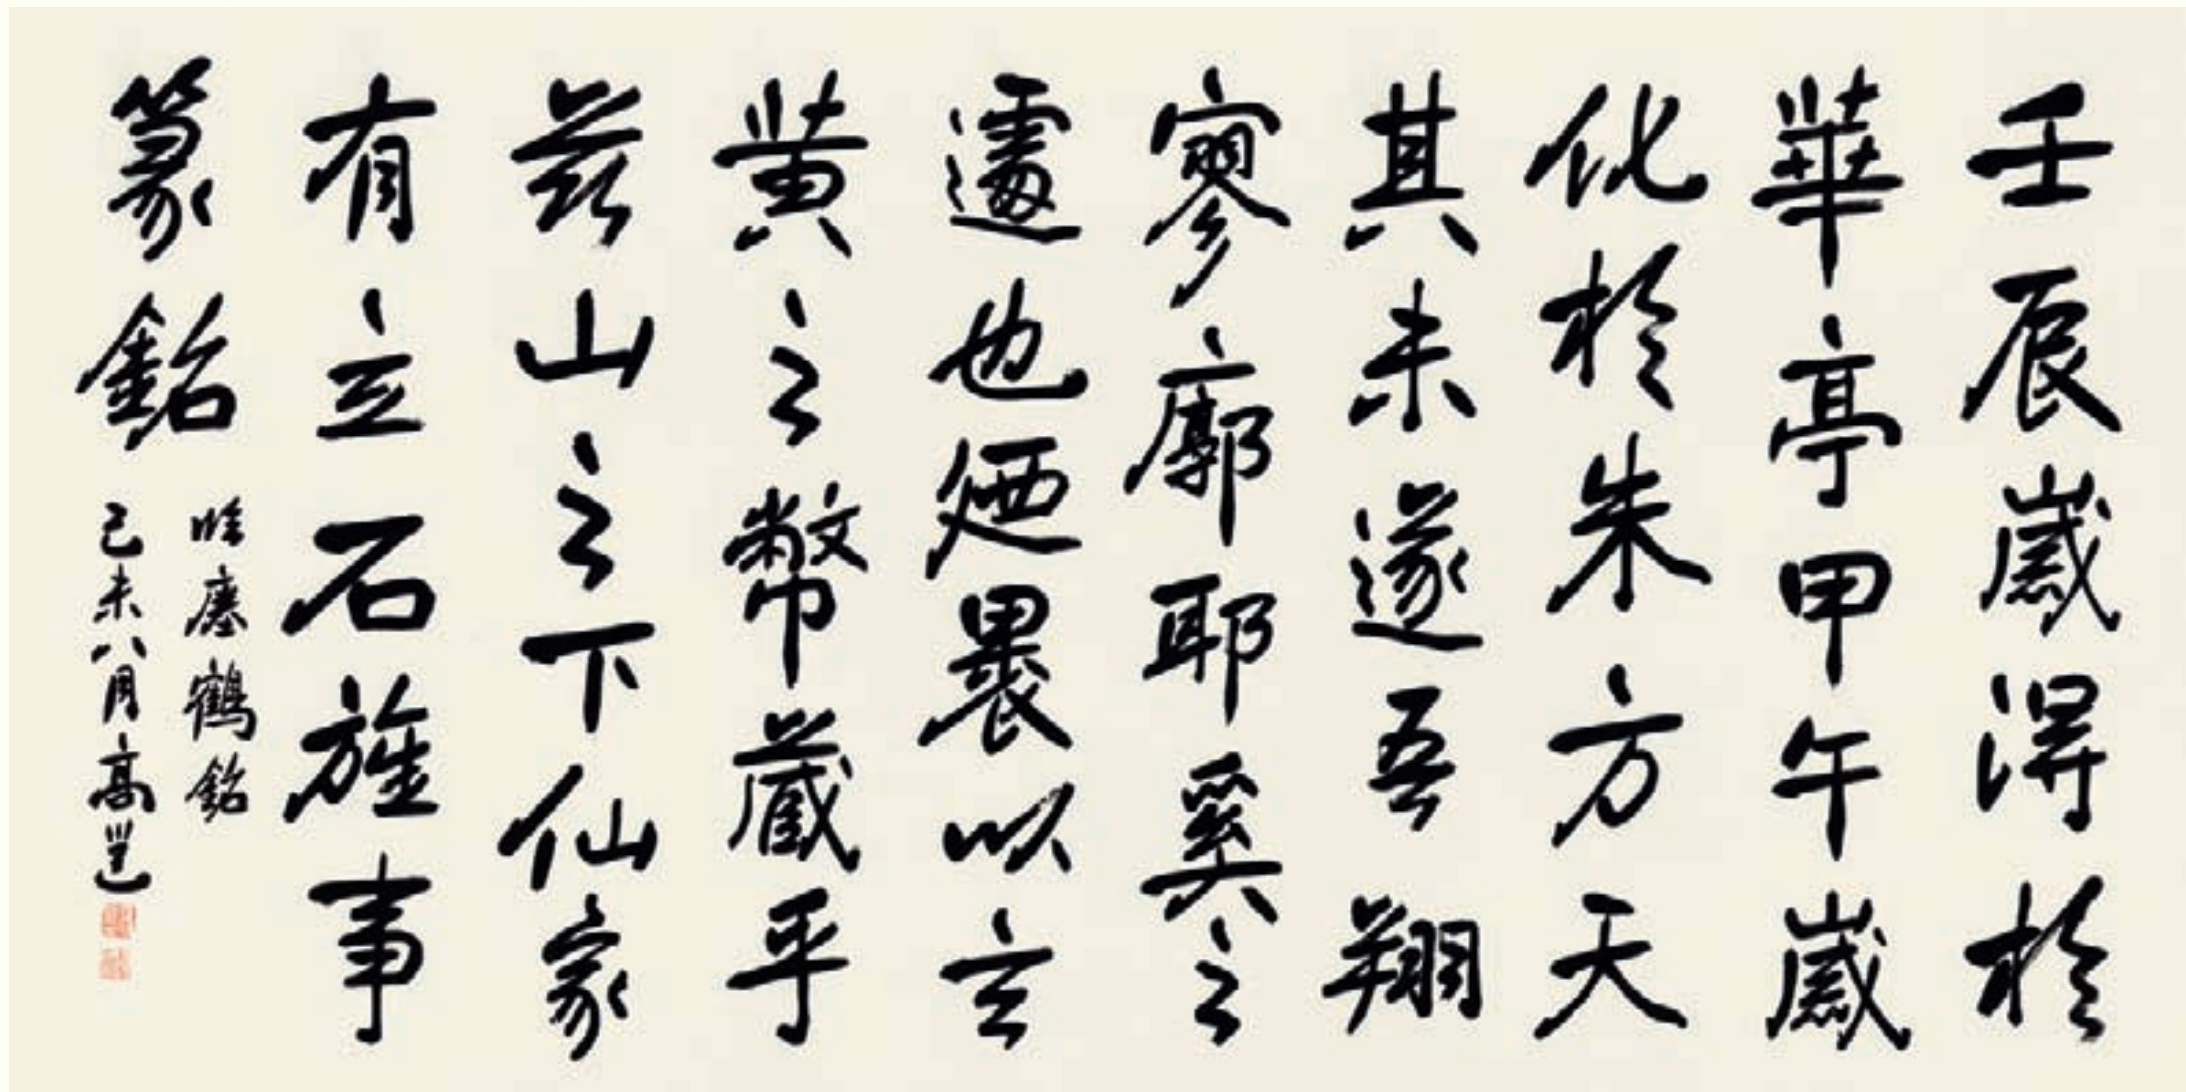 壬辰歲得於
華亭甲午歲
化於朱方天
其未遂吾翔
寥廓耶奚之
遽也廼裹以玄
黄之幣藏乎
茲山之下仙家
有立石旌事
篆銘
臨瘞鶴銘
己未八月高